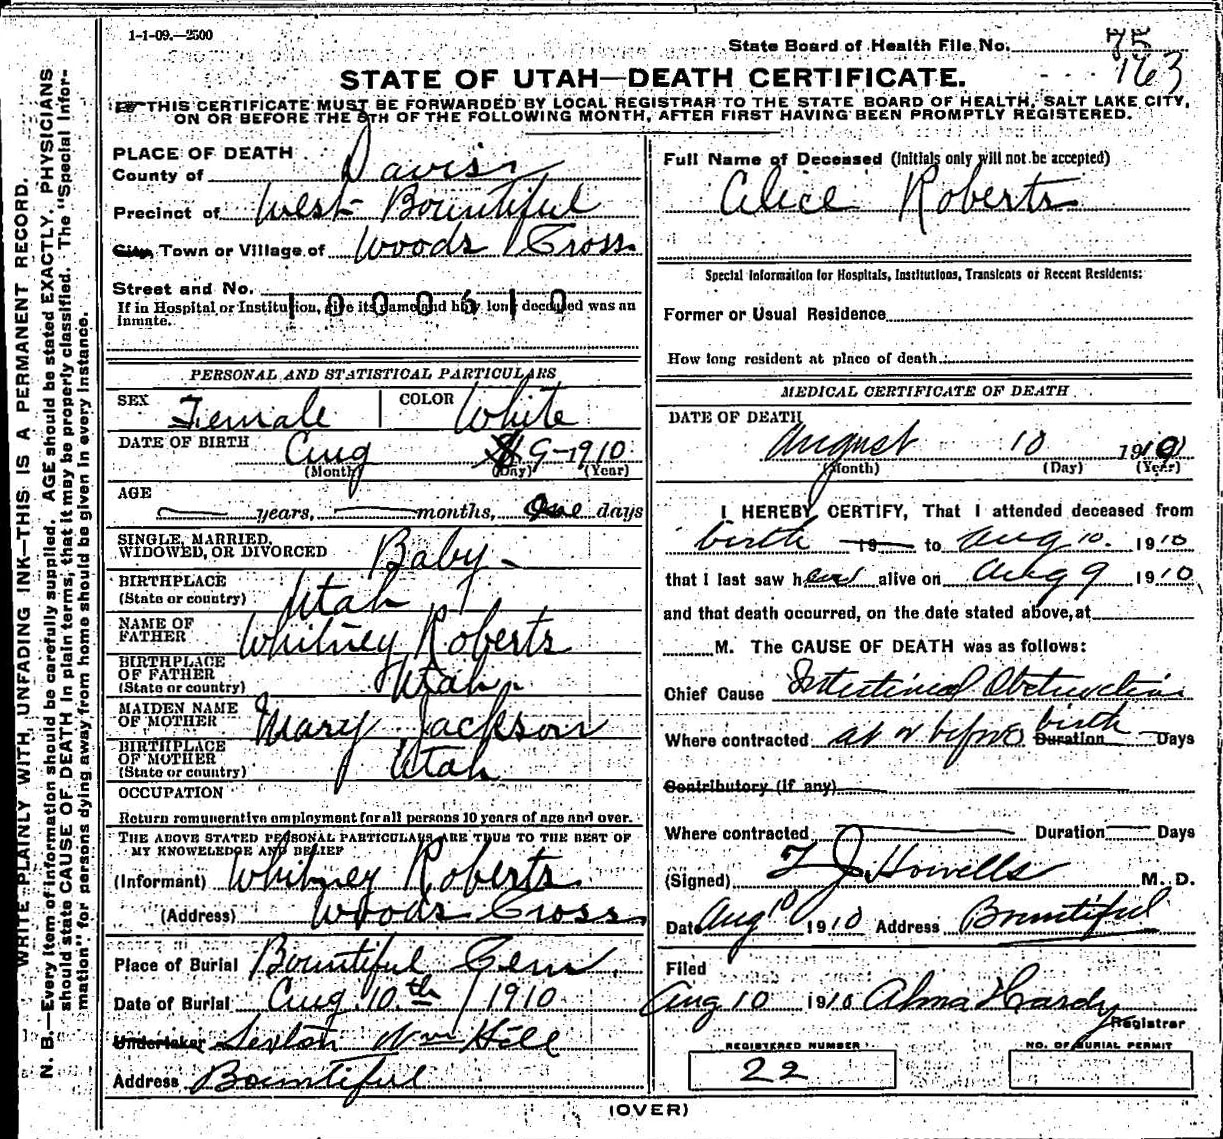 1-1-09.—2500
State Board of Health File No. 75
163
STATE OF UTAH—DEATH CERTIFICATE.
THIS CERTIFICATE MUST BE FORWARDED BY LOCAL REGISTRAR TO THE STATE BOARD OF HEALTH, SALT LAKE CITY,
ON OR BEFORE THE 5TH OF THE FOLLOWING MONTH, AFTER FIRST HAVING BEEN PROMPTLY REGISTERED.
WRITE PLAINLY WITH UNFADING INK—THIS IS A PERMANENT RECORD.
N. B.—Every item of information should be carefully supplied. AGE should be stated EXACTLY. PHYSICIANS
should state CAUSE OF DEATH in plain terms, that it may be properly classified. The "Special Infor-
mation" for persons dying away from home should be given in every instance.
PLACE OF DEATH
County of Davis
Precinct of West Bountiful
City, Town or Village of Woods Cross
Street and No.
1000610
If in Hospital or Institution, give its name and how long deceased was an
inmate.
PERSONAL AND STATISTICAL PARTICULARS
SEX Female COLOR White
DATE OF BIRTH Aug 9-1910
(Month) (Day) (Year)
AGE
years, months, One days
SINGLE, MARRIED,
WIDOWED, OR DIVORCED Baby -
BIRTHPLACE
(State or country) Utah
NAME OF
FATHER Whitney Roberts
BIRTHPLACE
OF FATHER
(State or country) Utah.
MAIDEN NAME
OF MOTHER Mary Jackson
BIRTHPLACE
OF MOTHER
(State or country) Utah
OCCUPATION
Return remunerative employment for all persons 10 years of age and over.
THE ABOVE STATED PERSONAL PARTICULARS ARE TRUE TO THE BEST OF
MY KNOWLEDGE AND BELIEF
(Informant) Whitney Roberts
(Address) Woods Cross
Place of Burial Bountiful Cem.
Date of Burial Aug 10th 1910
Undertaker Sexton Wm Hill
Address Bountiful
Full Name of Deceased (initials only will not be accepted)
Alice Roberts
Special Information for Hospitals, Institutions, Transients or Recent Residents:
Former or Usual Residence
How long resident at place of death
MEDICAL CERTIFICATE OF DEATH
DATE OF DEATH
August 10 1910
(Month) (Day) (Year)
I HEREBY CERTIFY, That I attended deceased from
birth 19 to Aug 10. 1910
that I last saw her alive on Aug 9 1910,
and that death occurred, on the date stated above, at
M. The CAUSE OF DEATH was as follows:
Chief Cause Intestinal Obstruction
Where contracted at or before birth Duration Days
Contributory (if any)
Where contracted Duration Days
(Signed) J. Howells M. D.
Date Aug 10 1910 Address Bountiful
Filed
Aug 10 1910 Alma Hardy
Registrar
REGISTERED NUMBER
22
NO. OF BURIAL PERMIT
(OVER)